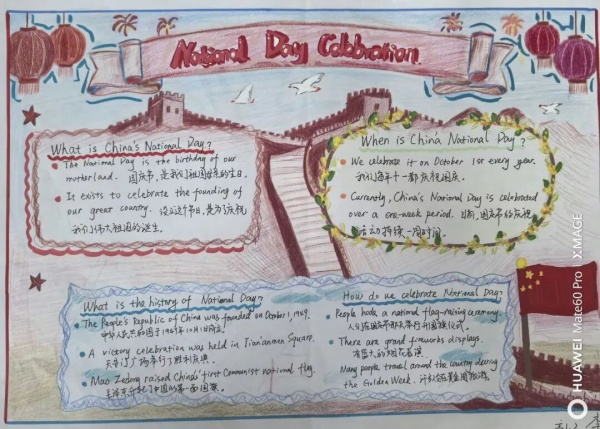 National Day Celebration
What is China's National Day?
The National Day is the birthday of our
motherland. 国庆节,是我们祖国母亲的生日.
It exists to celebrate the founding of
our great country. 设立这个节日,是为了庆祝
我们伟大祖国的诞生.
When is China National Day?
We celebrate it on October 1st every year.
我们每年十一都庆祝国庆.
Currently, China's National Day is celebrated
over a one-week period. 目前,国庆节的庆祝
活动持续一周时间.
What is the history of National Day?
The People's Republic of China was founded on October 1, 1949.
中华人民共和国于1949年10月1日成立.
A victory celebration was held in Tian'anmen Square.
天安门广场举行了胜利庆典.
Mao Zedong raised China's first Communist national flag.
毛泽东升起了中国的第一面国旗.
How do we celebrate National Day?
People hold a national flag-raising ceremony.
人们在国庆节那天举行升国旗仪式.
There are grand fireworks displays.
有盛大的烟花表演.
Many people travel around the country during
the Golden Week. 许多人在黄金周旅游.
HUAWEI Mate60 Pro XMAGE